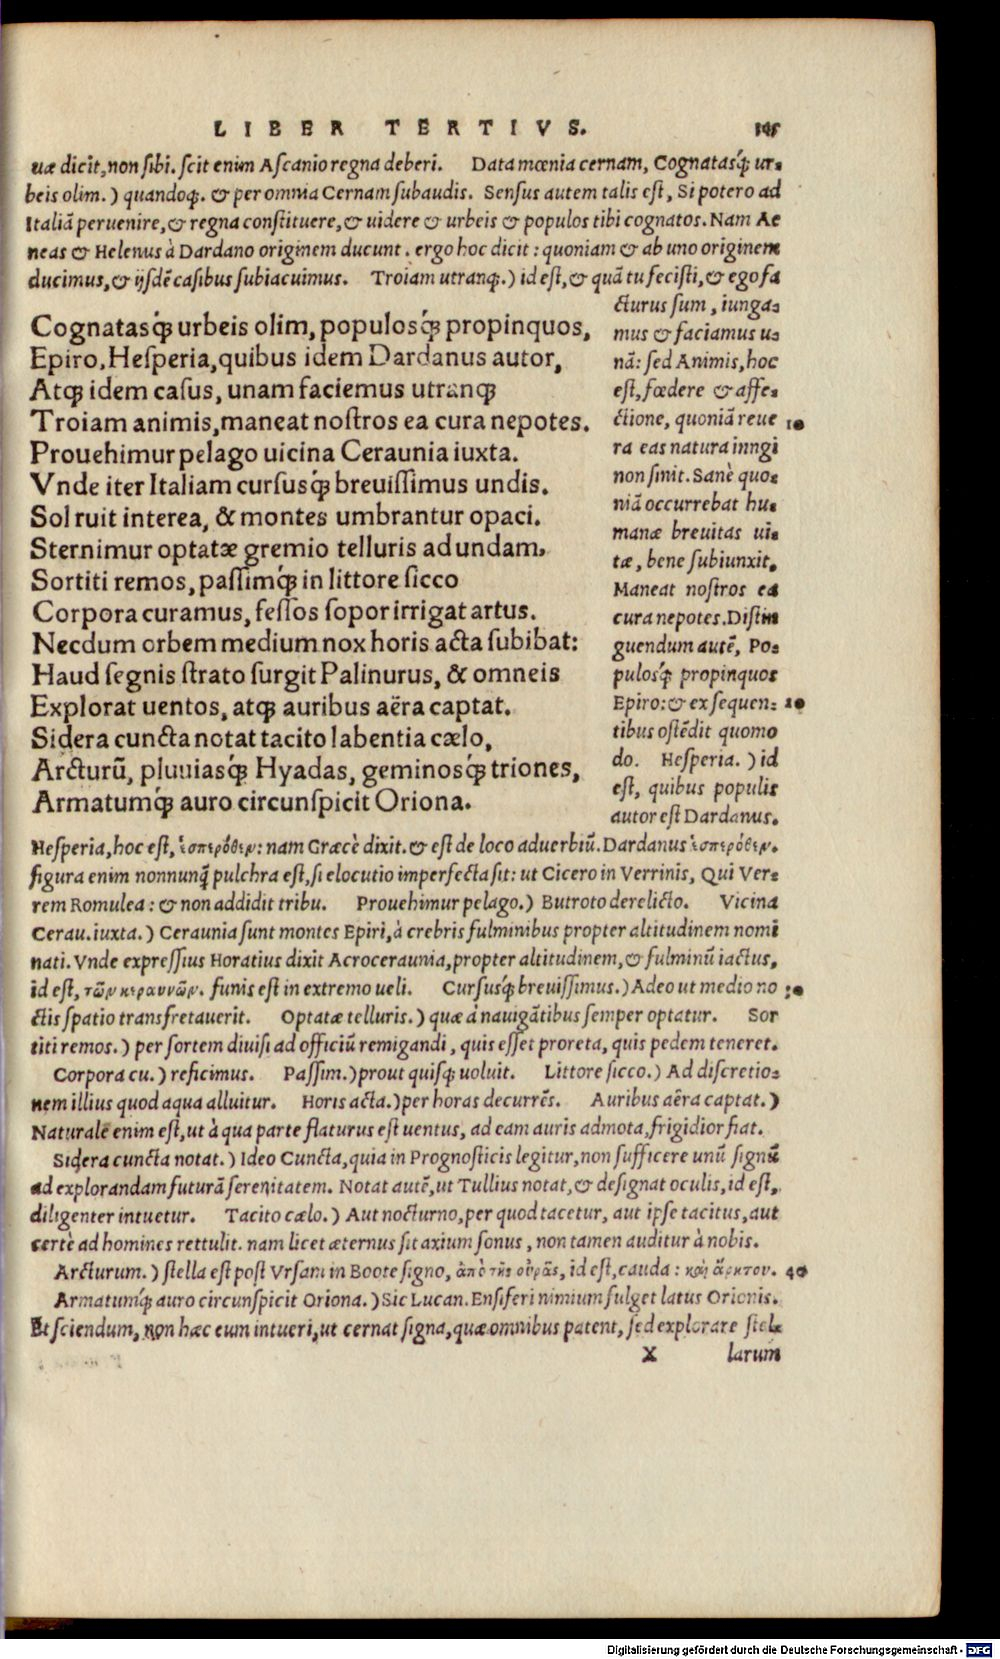 LIBER TERTIVS. 145
uæ dicit, non sibi. scit enim Ascanio regna deberi. Data mœnia cernam, Cognatasq́ꝫ ur-
beis olim.) quandoqꝫ. & per omnia Cernam subaudis. Sensus autem talis est, Si potero ad
Italiã peruenire, & regna constituere, & uidere & urbeis & populos tibi cognatos. Nam Ae
neas & Helenus à Dardano originem ducunt. ergo hoc dicit: quoniam & ab uno originem
ducimus, & ijsdẽ casibus subiacuimus. Troiam utranqꝫ.) id est, & quã tu fecisti, & ego fa
Cognatasq́ꝫ urbeis olim, populosq́ꝫ propinquos,
Epiro, Hesperia, quibus idem Dardanus autor,
Atqꝫ idem casus, unam faciemus utranqꝫ
Troiam animis, maneat nostros ea cura nepotes.
Prouehimur pelago uicina Ceraunia iuxta.
Vnde iter Italiam cursusq́ꝫ breuissimus undis.
Sol ruit interea, & montes umbrantur opaci.
Sternimur optatæ gremio telluris ad undam,
Sortiti remos, passimq́ꝫ in littore sicco
Corpora curamus, fessos sopor irrigat artus.
Necdum orbem medium nox horis acta subibat:
Haud segnis strato surgit Palinurus, & omneis
Explorat uentos, atqꝫ auribus aëra captat.
Sidera cuncta notat tacito labentia cælo,
Arcturũ, pluuiasq́ꝫ Hyadas, geminosq́ꝫ triones,
Armatumq́ꝫ auro circunspicit Oriona.
cturus sum, iunga-
mus & faciamus u-
nã: sed Animis, hoc
est, fœdere & affe-
ctione, quoniã reue 10
ra eas natura inngi
non sinit. Sanè quo-
niã occurrebat hu-
manæ breuitas ui-
tæ, bene subiunxit,
Maneat nostros ea
cura nepotes. Distin
guendum autẽ, Po-
pulosq́ꝫ propinquos
Epiro: & ex sequen- 20
tibus ostẽdit quomo
do. Hesperia.) id
est, quibus populis
autor est Dardanus.
Hesperia, hoc est, ἑσπερόθεν: nam Græcè dixit. & est de loco aduerbiũ. Dardanus ἑσπερόθεν.
figura enim nonnunq̃ pulchra est, si elocutio imperfecta sit: ut Cicero in Verrinis, Qui Ver-
rem Romulea: & non addidit tribu. Prouehimur pelago.) Butroto derelicto. Vicina
Cerau. iuxta.) Ceraunia sunt montes Epiri, à crebris fulminibus propter altitudinem nomi
nati. Vnde expressius Horatius dixit Acroceraunia, propter altitudinem, & fulminũ iactus,
id est, τῶν κεραυνῶν. funis est in extremo ueli. Cursusq́ꝫ breuissimus.) Adeo ut medio no 30
ctis spatio transfretauerit. Optatæ telluris.) quæ à nauigãtibus semper optatur. Sor
titi remos.) per sortem diuisi ad officiũ remigandi, quis esset proreta, quis pedem teneret.
Corpora cu.) reficimus. Passim.) prout quisqꝫ uoluit. Littore sicco.) Ad discretio-
nem illius quod aqua alluitur. Horis acta.) per horas decurrẽs. Auribus aëra captat.)
Naturale enim est, ut à qua parte flaturus est uentus, ad eam auris admota, frigidior fiat.
Sidera cuncta notat.) Ideo Cuncta, quia in Prognosticis legitur, non sufficere unũ signũ
ad explorandam futurã serenitatem. Notat autẽ, ut Tullius notat, & designat oculis, id est,
diligenter intuetur. Tacito cælo.) Aut nocturno, per quod tacetur, aut ipse tacitus, aut
certè ad homines rettulit. nam licet æternus sit axium sonus, non tamen auditur à nobis.
Arcturum.) stella est post Vrsam in Boote signo, ἀπὸ τῆς οὐρᾶς, id est, cauda: καὶ ἄρκτου. 40
Armatumq́ꝫ auro circunspicit Oriona.) Sic Lucan. Ensiferi nimium fulget latus Orionis.
Et sciendum, non hæc eum intueri, ut cernat signa, quæ omnibus patent, sed explorare stel-
X larum
Digitalisierung gefördert durch die Deutsche Forschungsgemeinschaft - DFG